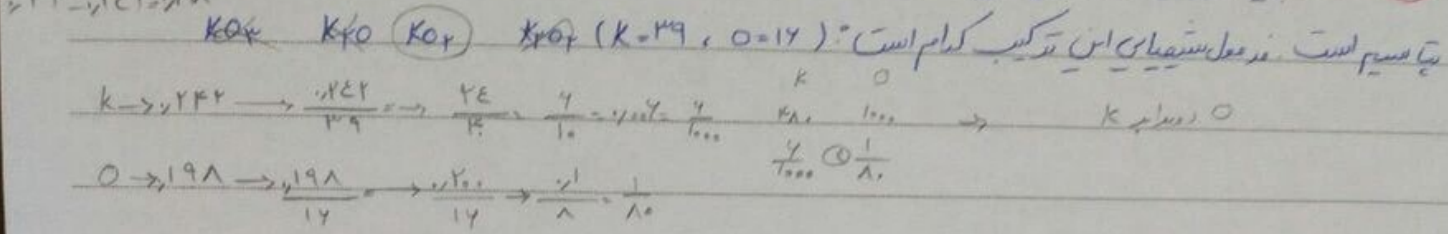 پتاسیم است. فرمول شیمیایی این ترکیب کدام است: (K=۳۹ , O=۱۶) K₂O₂ KO₂ K₂O
K → ۰,۲۴۲ → ۰,۲۴۲/۳۹ = → ۲۴/۴۰ = ۶/۱۰ = ۰,۰۰۶ = ۶/۱۰۰۰ K O ۴۸۰ ۱۰۰۰ → O دو برابر K
۶/۱۰۰۰ < ۱/۸۰
O → ۰,۱۹۸ → ۰,۱۹۸/۱۶ = → ۰,۲۰۰/۱۶ → ۰,۱/۸ = ۱/۸۰